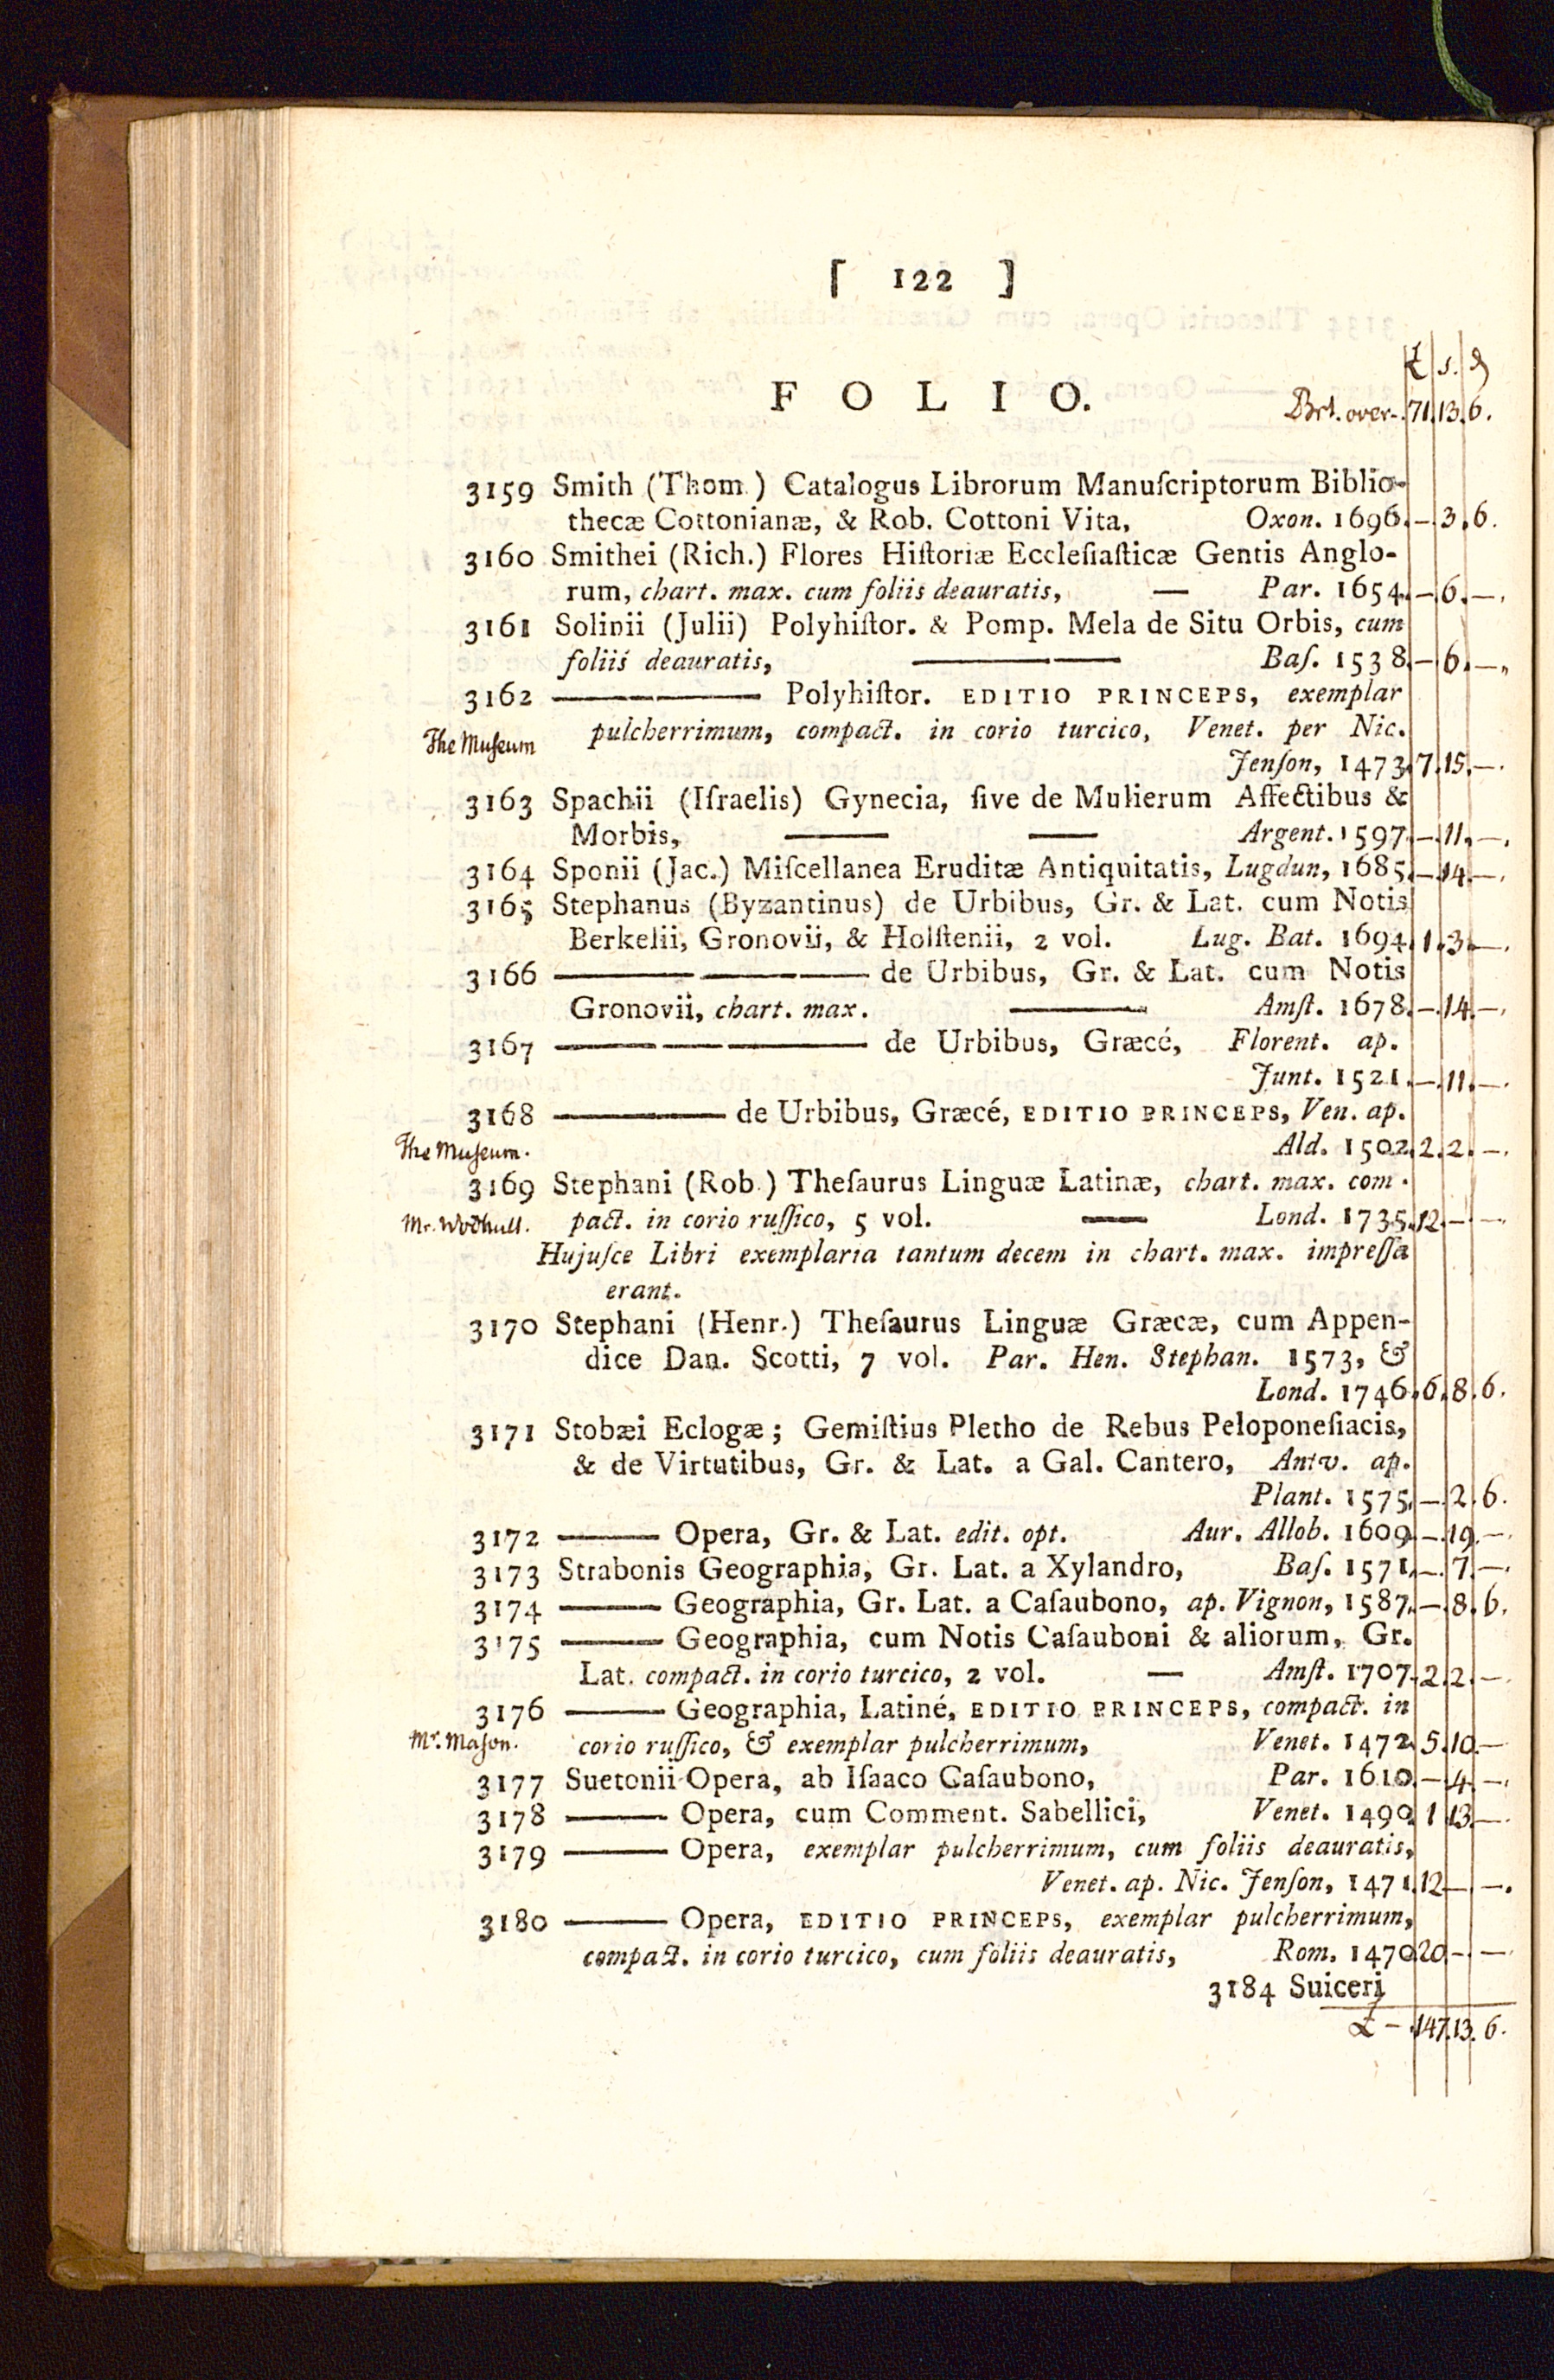 [ 122 ]
£ s. d
F O L I O.
Brt. over-. 71.13.6.
3159 Smith (Thom.) Catalogus Librorum Manuſcriptorum Biblio-
thecæ Cottonianæ, & Rob. Cottoni Vita, Oxon. 1696. – 3.6.
3160 Smithei (Rich.) Flores Hiſtoriæ Eccleſiaſticæ Gentis Anglo-
rum, chart. max. cum foliis deauratis, — Par. 1654. – 6. –.
3161 Solinii (Julii) Polyhiſtor. & Pomp. Mela de Situ Orbis, cum
foliis deauratis, —— Baſ. 1538. – 6. –.
3162 —— Polyhiſtor. EDITIO PRINCEPS, exemplar
The Muſeum pulcherrimum, compact. in corio turcico, Venet. per Nic.
Jenſon, 1473. 7.15. –.
3163 Spachii (Iſraelis) Gynecia, ſive de Mulierum Affectibus &
Morbis, —— —— Argent. 1597. – 11. –.
3164 Sponii (Jac.) Miſcellanea Eruditæ Antiquitatis, Lugdun, 1685. – 14. –.
3165 Stephanus (Byzantinus) de Urbibus, Gr. & Lat. cum Notis
Berkelii, Gronovii, & Holſtenii, 2 vol. Lug. Bat. 1694. 1.3. –.
3166 —— de Urbibus, Gr. & Lat. cum Notis
Gronovii, chart. max. —— Amſt. 1678. – 14. –.
3167 —— de Urbibus, Græcé, Florent. ap.
Junt. 1521. – 11. –.
3168 —— de Urbibus, Græcé, EDITIO PRINCEPS, Ven. ap.
The Muſeum. Ald. 1502. 2.2. –.
3169 Stephani (Rob.) Theſaurus Linguæ Latinæ, chart. max. com-
Mr. Wodhull. pact. in corio ruſſico, 5 vol. — Lond. 1735. 12. – –
Hujuſce Libri exemplaria tantum decem in chart. max. impreſſa
erant.
3170 Stephani (Henr.) Theſaurus Linguæ Græcæ, cum Appen-
dice Dan. Scotti, 7 vol. Par. Hen. Stephan. 1573, &
Lond. 1746. 6.8.6.
3171 Stobæi Eclogæ; Gemiſtius Pletho de Rebus Peloponeſiacis,
& de Virtutibus, Gr. & Lat. a Gal. Cantero, Antv. ap.
Plant. 1575. – 2.6.
3172 —— Opera, Gr. & Lat. edit. opt. Aur. Allob. 1609. – 19. –.
3173 Strabonis Geographia, Gr. Lat. a Xylandro, Baſ. 1571. – 7. –.
3174 —— Geographia, Gr. Lat. a Caſaubono, ap. Vignon, 1587. – 8.6.
3175 —— Geographia, cum Notis Caſauboni & aliorum, Gr.
Lat. compact. in corio turcico, 2 vol. — Amſt. 1707. 2.2. –
3176 —— Geographia, Latiné, EDITIO PRINCEPS, compact. in
Mr. Maſon. corio ruſſico, & exemplar pulcherrimum, Venet. 1472. 5.10. –
3177 Suetonii Opera, ab Iſaaco Caſaubono, Par. 1610. – 4. –.
3178 —— Opera, cum Comment. Sabellici, Venet. 1490. 1.13. –.
3179 —— Opera, exemplar pulcherrimum, cum foliis deauratis,
Venet. ap. Nic. Jenſon, 1471. 12. – –.
3180 —— Opera, EDITIO PRINCEPS, exemplar pulcherrimum,
compact. in corio turcico, cum foliis deauratis, Rom. 1470 20. – –.
3184 Suiceri
£ – 147.13.6.